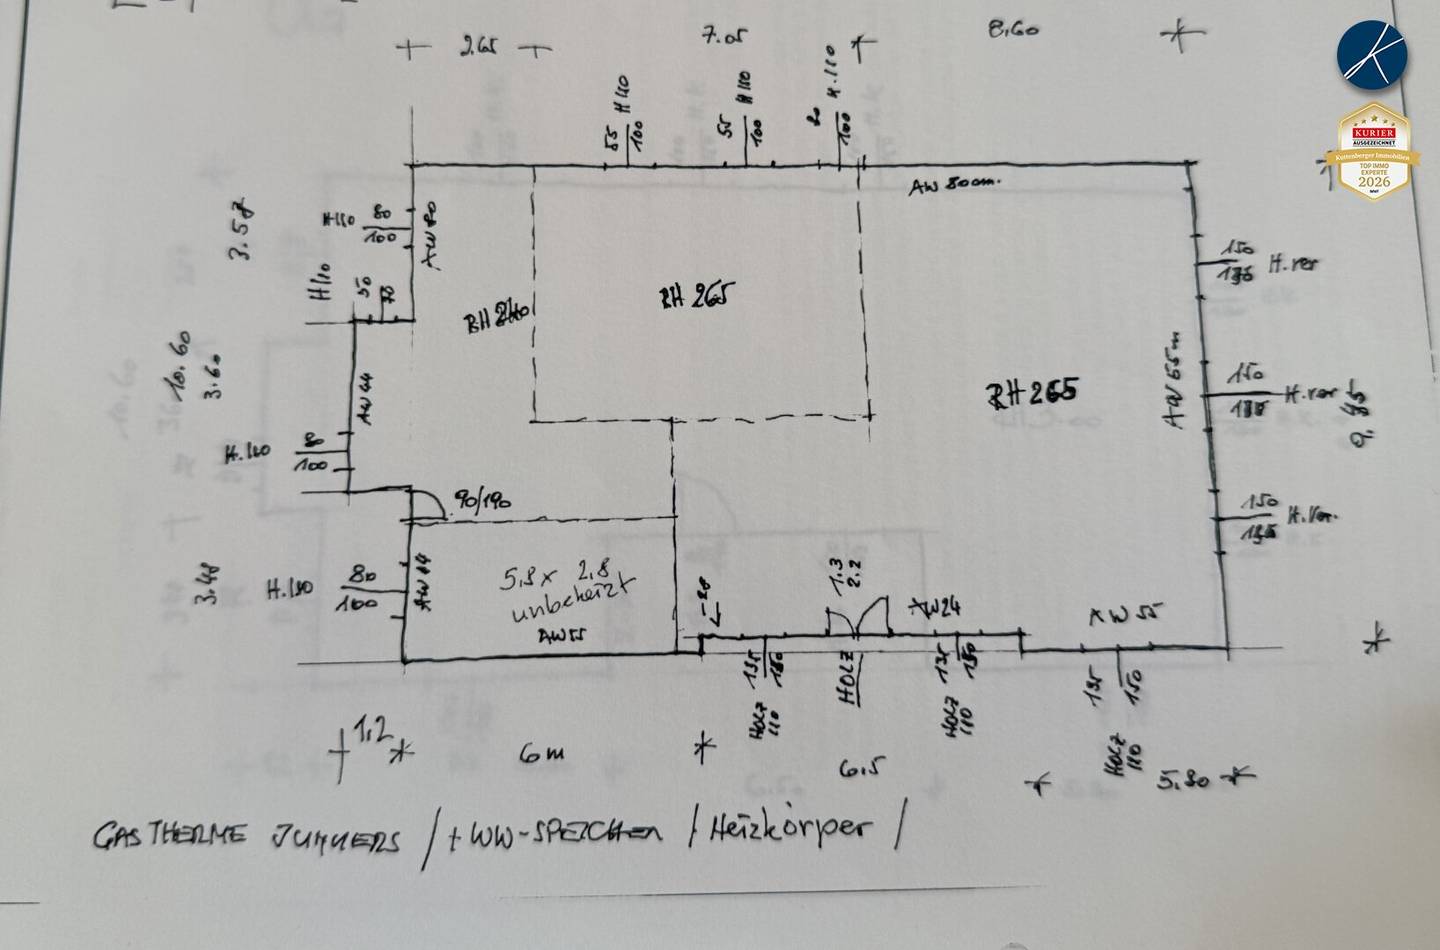 2.65
7.05
8.60
55
100
H 110
55
100
H 110
80
100
H.110
KURIER
AUSGEZEICHNET
Kuttenberger Immobilien
TOP IMMO
EXPERTE
2026
AW 80cm.
3.58
H110
80
100
AW 80
H110
50
70
BH 240
RH 265
RH 265
150
H.ver
AW 55m
150
H.ver
9,85
150
H.Ver.
10.60
3.60
AW 44
H.180
80
100
90/190
3.48
H.180
80
100
AW 44
5,8 x 2,8
unbeheizt
AW 55
1.3
2.2
AW24
AW 55
135
HOLZ
110
HOLZ
135
150
HOLZ
110
135
150
HOLZ
110
1.2
6 m
6.5
5.80
GASTHERME JUNKERS / + WW-SPEICHER / Heizkörper /